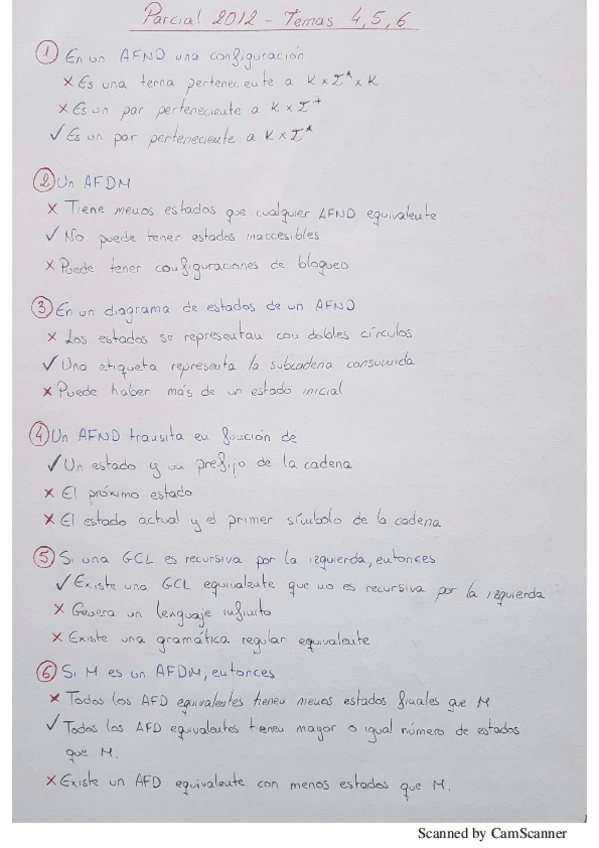 Parcial 2012 - Temas 4, 5, 6
① En un AFND una configuración
× Es una terna perteneciente a K × Σ* × K
× Es un par perteneciente a K × Σ+
✓ Es un par perteneciente a K × Σ*
② Un AFDM
× Tiene menos estados que cualquier AFND equivalente
✓ No puede tener estados inaccesibles
× Puede tener configuraciones de bloqueo
③ En un diagrama de estados de un AFND
× Los estados se representan con dobles círculos
✓ Una etiqueta representa la subcadena consumida
× Puede haber más de un estado inicial
④ Un AFND transita en función de
✓ Un estado y un prefijo de la cadena
× El próximo estado
× El estado actual y el primer símbolo de la cadena
⑤ Si una GCL es recursiva por la izquierda, entonces
✓ Existe una GCL equivalente que no es recursiva por la izquierda
× Genera un lenguaje infinito
× Existe una gramática regular equivalente
⑥ Si M es un AFDM, entonces
× Todos los AFD equivalentes tienen menos estados finales que M
✓ Todos los AFD equivalentes tienen mayor o igual número de estados
que M.
× Existe un AFD equivalente con menos estados que M.
Scanned by CamScanner